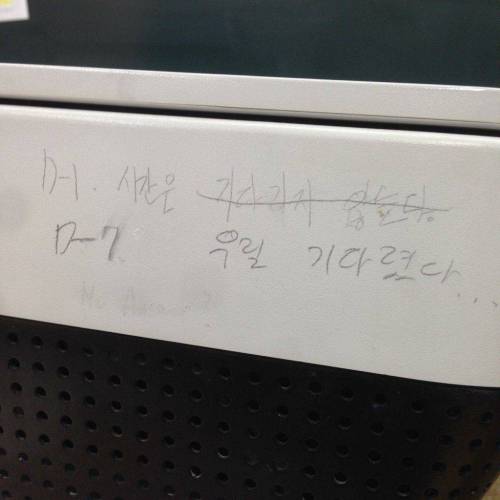 D-1. 시간은 기다리지 않는다.
D-7 우릴 기다렸다...
No Answer?